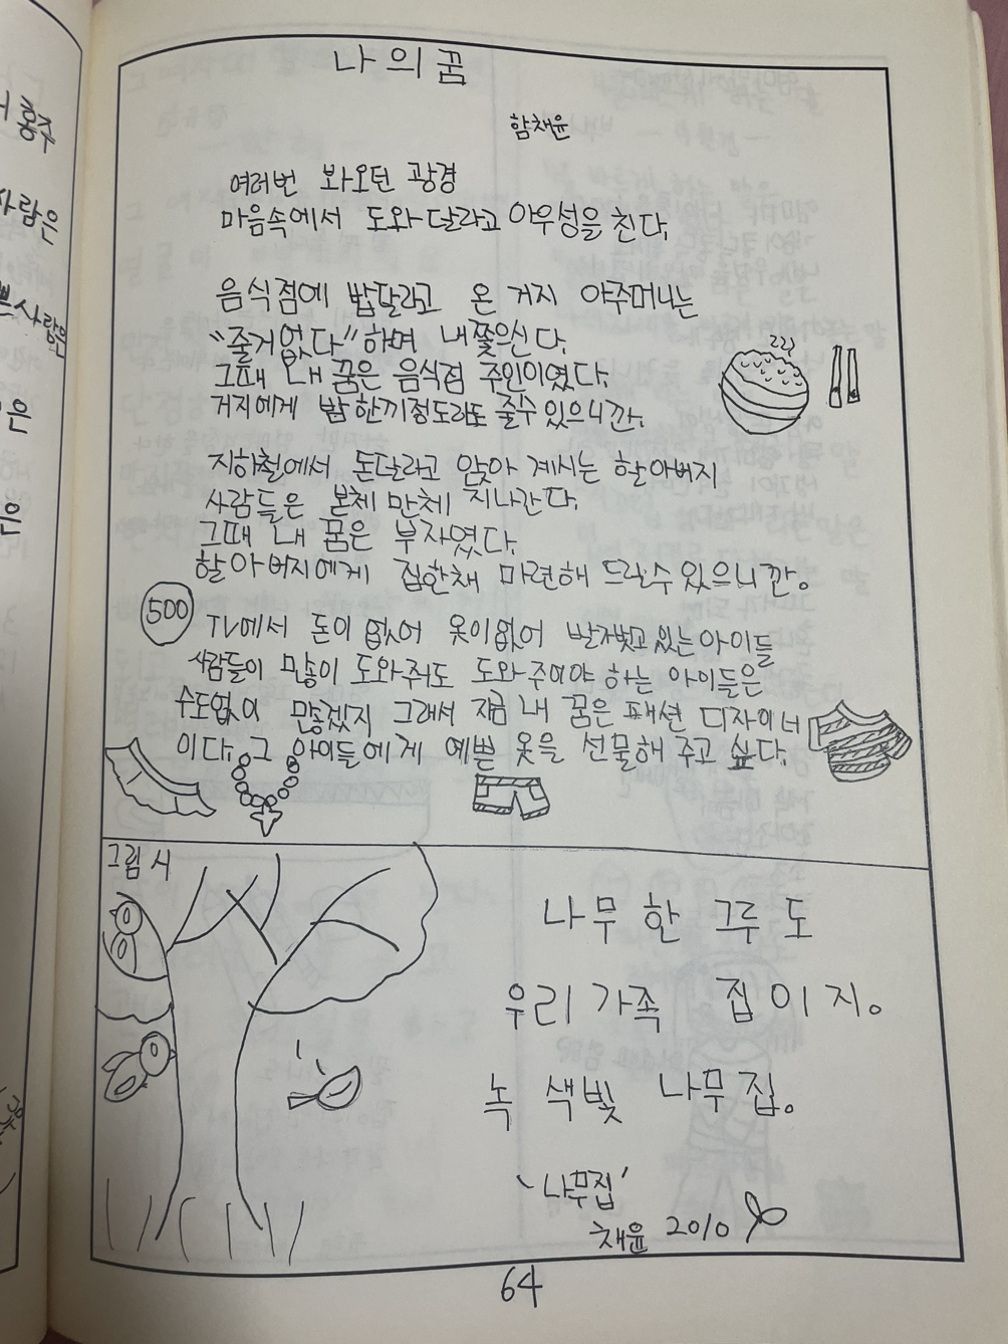 나의꿈
함채윤
여러번 봐오던 광경
마음속에서 도와달라고 아우성을 친다.
음식점에 밥달라고 온 거지 아주머니는
"줄거없다"하며 내쫓으신다.
그때 내 꿈은 음식점 주인이였다.
거지에게 밥한끼정도라도 줄수있으니깐.
지하철에서 돈달라고 앉아 계시는 할아버지
사람들은 본체 만체 지나간다.
그때 내 꿈은 부자였다.
할아버지에게 집한채 마련해 드릴수있으니깐.
500
TV에서 돈이 없어 옷이없어 발거벗고있는아이들
사람들이 많이 도와줘도 도와주어야 하는 아이들은
수도없이 많겠지 그래서 지금 내 꿈은 패션 디자이너
이다. 그 아이들에게 예쁜 옷을 선물해 주고 싶다.
그림시
나무 한 그루도
우리 가족 집이지.
녹색빛 나무집.
'나무집'
채윤 2010
64
홍주
사람은
사람은
은
은